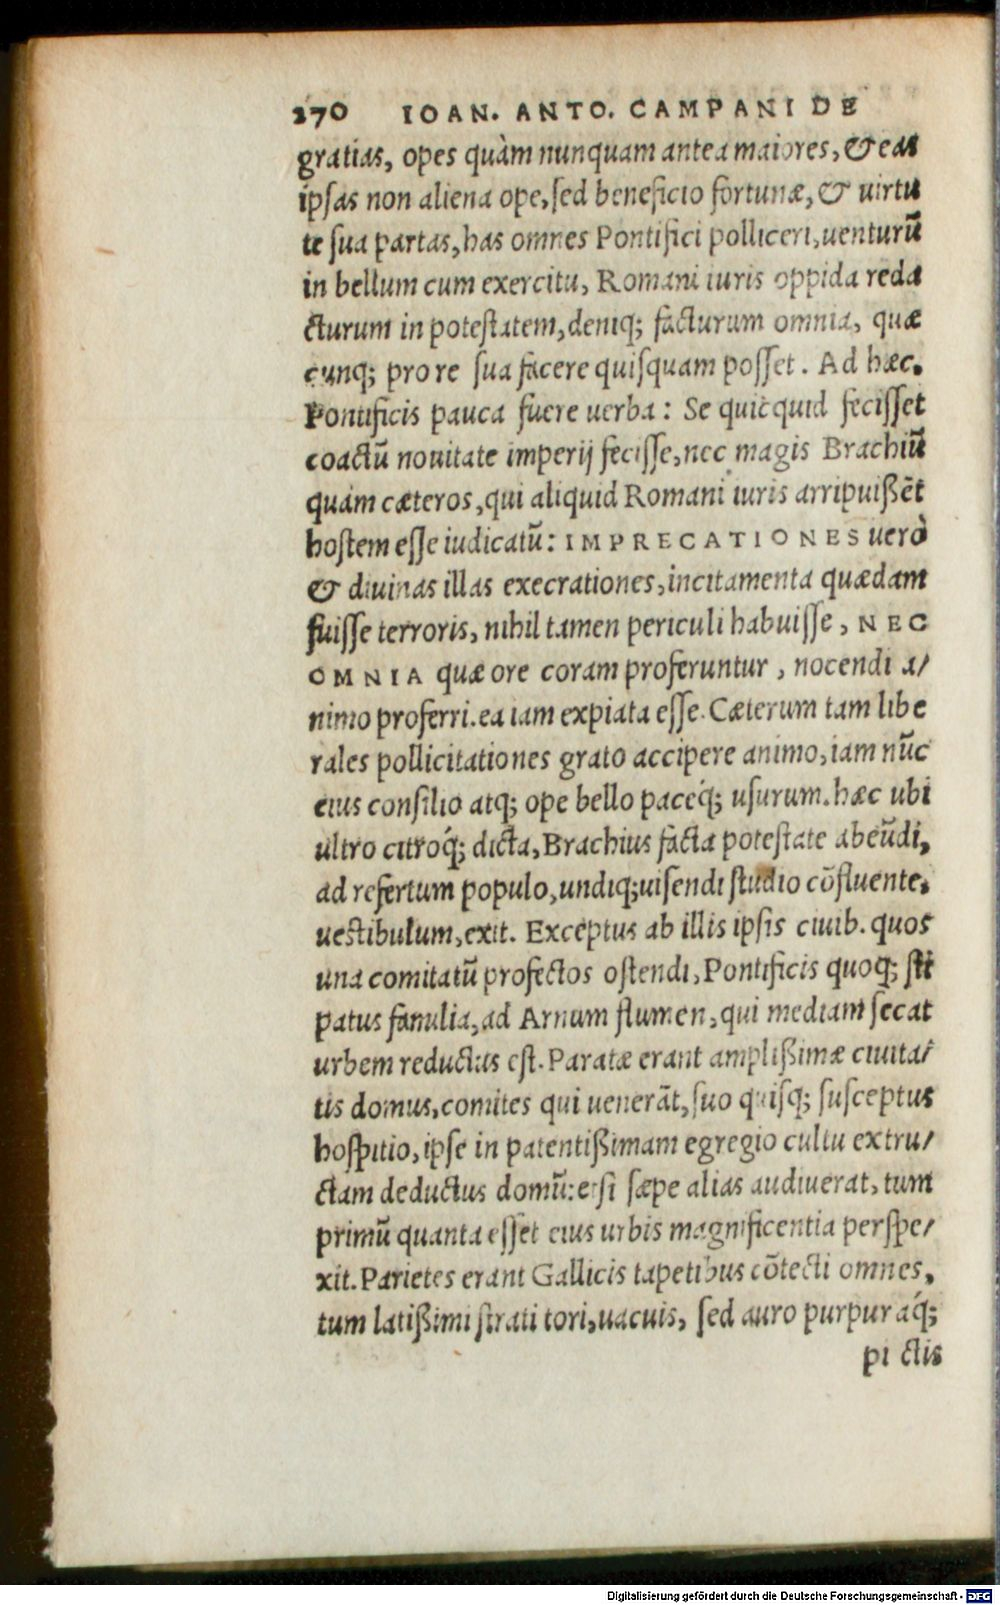 270 IOAN. ANTO. CAMPANI DE
gratias, opes quàm nunquam antea maiores, & eas
ipsas non aliena ope, sed beneficio fortunæ, & uirtu
te sua partas, has omnes Pontifici polliceri, uenturũ
in bellum cum exercitu, Romani iuris oppida reda
cturum in potestatem, deniq; facturum omnia, quæ
cunq; pro re sua facere quisquam posset. Ad hæc.
Pontificis pauca fuere uerba: Se quicquid fecisset
coactũ nouitate imperij fecisse, nec magis Brachiũ
quàm cæteros, qui aliquid Romani iuris arripuißẽt
hostem esse iudicatũ: IMPRECATIONES uerò
& diuinas illas execrationes, incitamenta quædam
fuisse terroris, nihil tamen periculi habuisse, NEC
OMNIA quæ ore coram proferuntur, nocendi a/
nimo proferri. ea iam expiata esse. Cæterum tam libe
rales pollicitationes grato accipere animo, iam nũc
eius consilio atq; ope bello paceq́; usurum. hæc ubi
ultro citroq́; dicta, Brachius facta potestate abeũdi,
ad refertum populo, undiq; uisendi studio cõfluente.
uestibulum, exit. Exceptus ab illis ipsis ciuib. quos
una comitatũ profectos ostendi, Pontificis quoq; sti
patus familia, ad Arnum flumen, qui mediam secat
urbem reductus est. Paratæ erant amplißimæ ciuita/
tis domus, comites qui uenerãt, suo quisq; susceptus
hospitio, ipse in patentißimam egregio cultu extru/
ctam deductus domũ: etsi sæpe alias audiuerat, tum
primũ quanta esset eius urbis magnificentia perspe/
xit. Parietes erant Gallicis tapetibus cõtecti omnes,
tum latißimi strati tori, uacuis, sed auro purpuraq́;
pi ctis
Digitalisierung gefördert durch die Deutsche Forschungsgemeinschaft - DFG